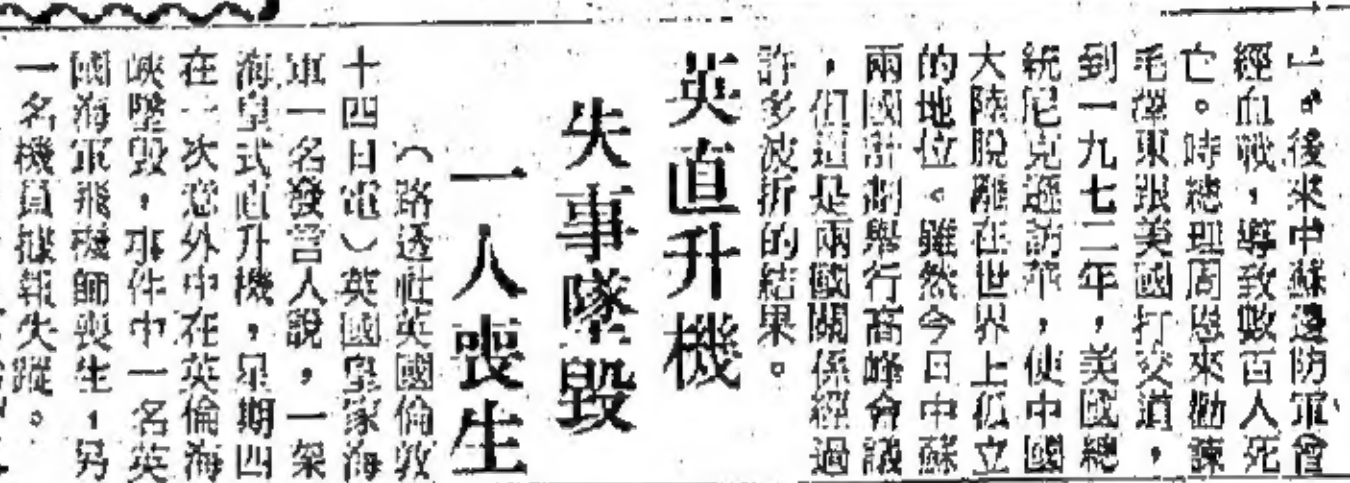 」。後來中蘇邊防軍曾
經血戰，導致數百人死
亡。時總理周恩來勸諫
毛澤東跟美國打交道，
到一九七二年，美國總
統尼克遜訪華，使中國
大陸脫離在世界上孤立
的地位。雖然今日中蘇
兩國計劃舉行高峰會議
，但這是兩國關係經過
許多波折的結果。
英直升機
失事墜毀
一人喪生
（路透社英國倫敦
十四日電）英國皇家海
軍一名發言人說，一架
海皇式直升機，星期四
在一次意外中在英倫海
峽墜毀，事件中一名英
國海軍飛機師喪生，另
一名機員據報失蹤。